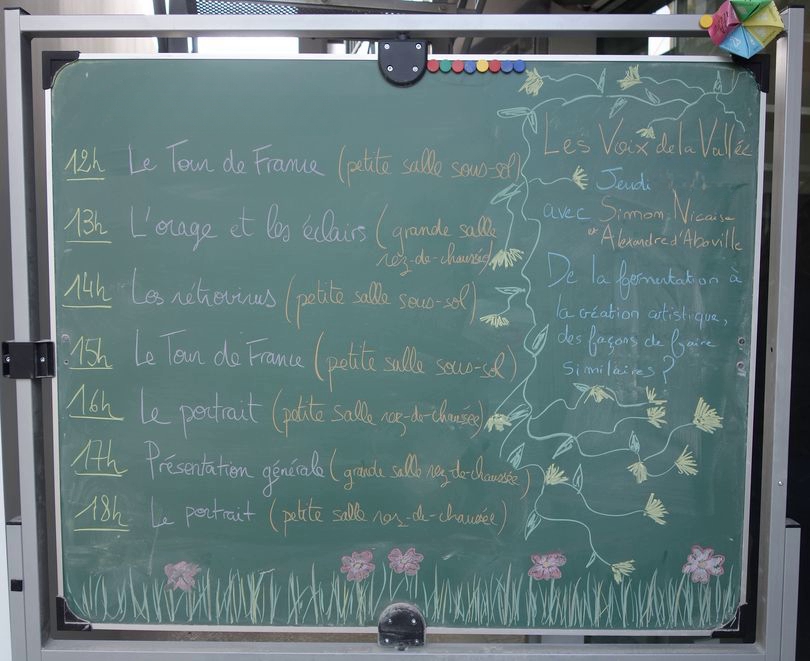 12h Le Tour de France (petite salle sous-sol)
13h L'orage et les éclairs (grande salle
rez-de-chaussée)
14h Les rétrovirus (petite salle sous-sol)
15h Le Tour de France (petite salle sous-sol)
16h Le portrait (petite salle rez-de-chaussée)
17h Présentation générale (grande salle rez-de-chaussée)
18h Le portrait (petite salle rez-de-chaussée)
Les Voix de la Vallée
Jeudi
avec Simon Nicaise
et Alexandre d'Aboville
De la fermentation à
la création artistique,
des façons de faire
similaires ?